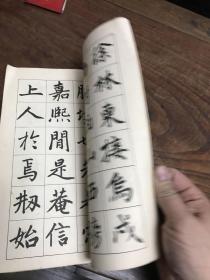 徐林東接烏戍
嘉熙間是菴信
上人於焉剏始